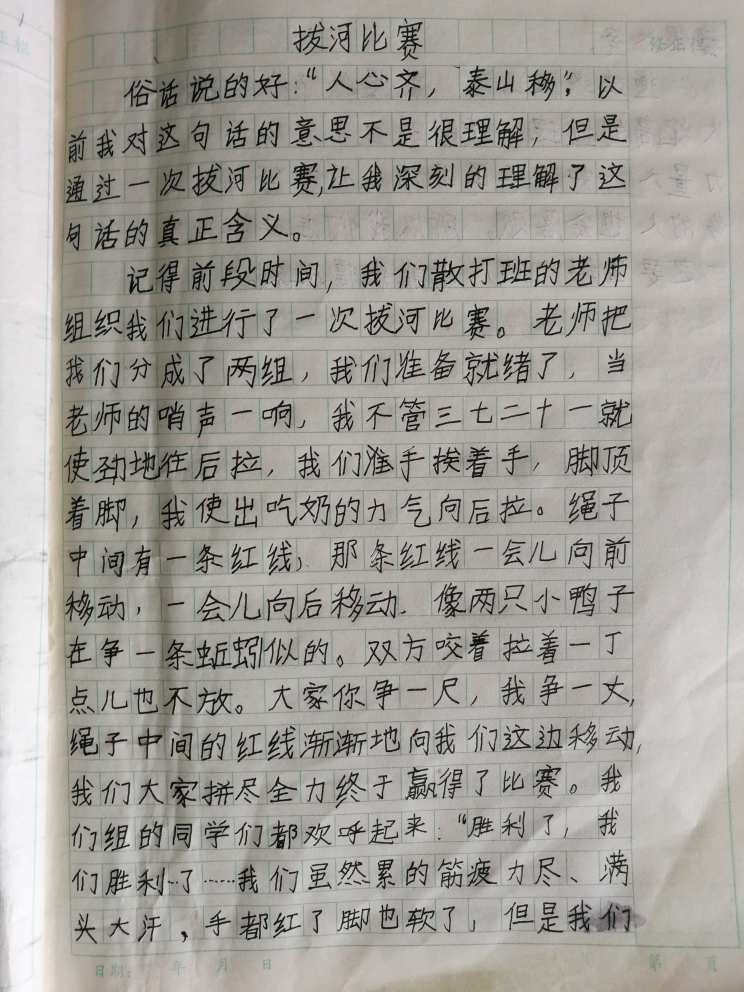 拔河比赛
俗话说的好:“人心齐，泰山移”，以
前我对这句话的意思不是很理解，但是
通过一次拔河比赛,让我深刻的理解了这
句话的真正含义。
记得前段时间，我们散打班的老师
组织我们进行了一次拔河比赛。老师把
我们分成了两组，我们准备就绪了，当
老师的哨声一响，我不管三七二十一就
使劲地往后拉，我们准手挨着手，脚顶
着脚，我使出吃奶的力气向后拉。绳子
中间有一条红线，那条红线一会儿向前
移动，一会儿向后移动．像两只小鸭子
在争一条蚯蚓似的。双方咬着拉着一丁
点儿也不放。大家你争一尺，我争一丈,
绳子中间的红线渐渐地向我们这边移动,
我们大家拼尽全力终于赢得了比赛。我
们组的同学们都欢呼起来:“胜利了，我
们胜利了……我们虽然累的筋疲力尽、满
头大汗，手都红了脚也软了，但是我们
日期: 年 月 日 第 页